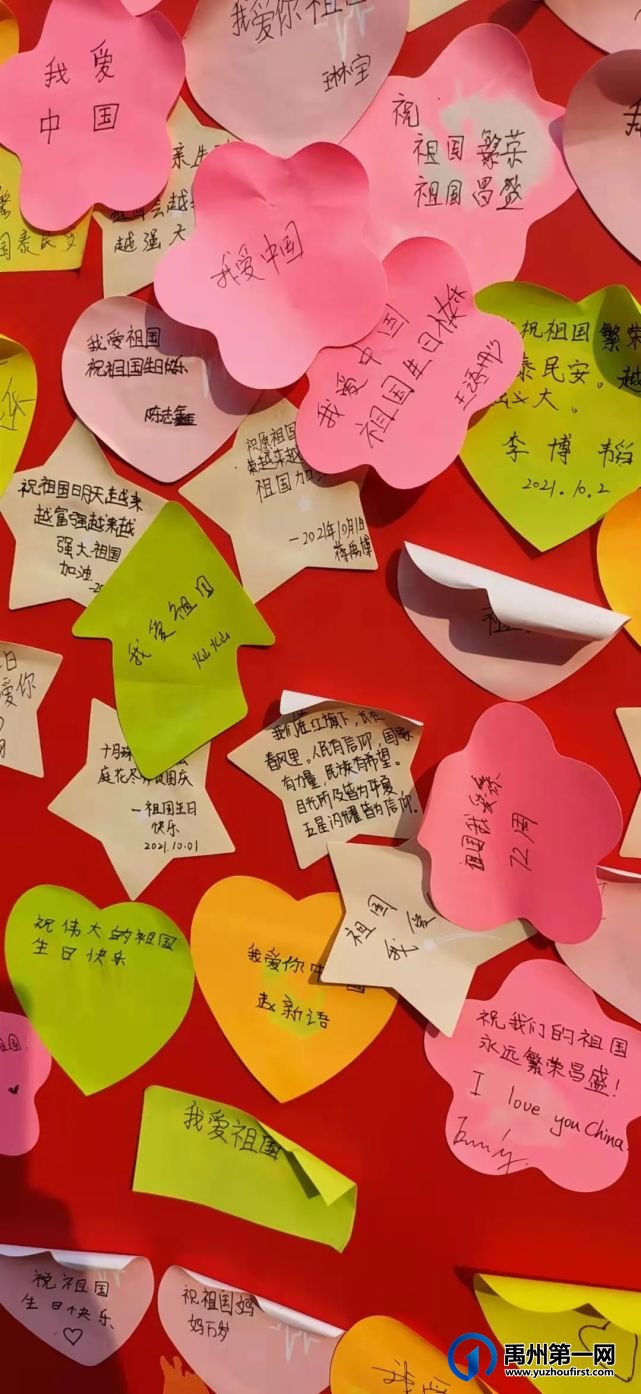 我爱你祖国
琳宝
我爱
中国
祝
祖国繁荣
祖国昌盛
越强大
国泰民安
我爱中国
我爱祖国
祝祖国生日快乐
我爱中国
祖国生日快乐
祝祖国繁荣
泰民安。越
大。
李博
2021.10.2
祝愿祖国
越来越
祖国加
—2021年10月1日
祝祖国明天越来
越富强越来越
强大祖国
加油
我爱祖国
灿灿
祖
日
爱你
我们在红旗下，长在
春风里。人民有信仰，国家
有力量，民族有希望。
目光所及皆为华夏，
五星闪耀皆为信仰。
十月
庭花冬 国庆
—祖国生日
快乐
2021.10.01
祖国我爱你
72周
祖国
我爱
祝伟大的祖国
生日快乐
我爱你中国
赵新语
祝我们的祖国
永远繁荣昌盛！
I love you China.
Emily.
国.
我爱祖国
祝祖国
生日快乐
祝祖国妈
妈万岁
我爱
禹州第一网
www.yuzhoufirst.com